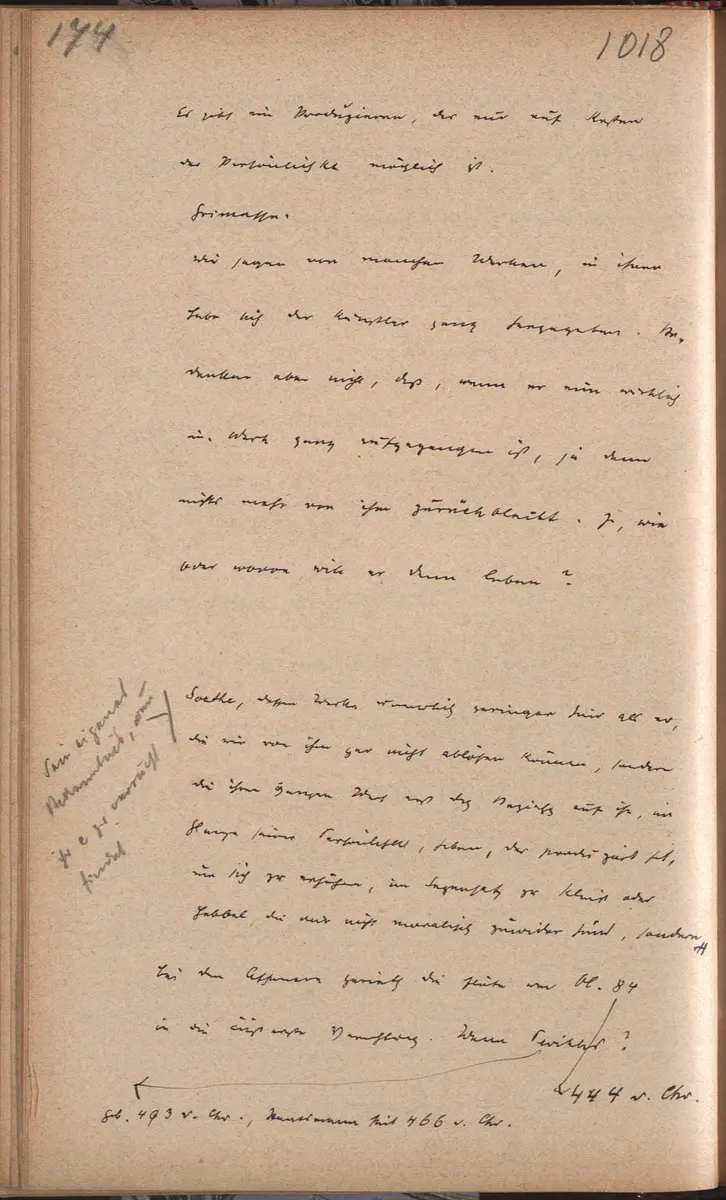 174
1018
Es gibt ein Produzieren, das nur auf Kosten
der Persönlichkt möglich ist.
Grimasse.
Wir sagen von manchen Werken, in ihnen
habe sich der Künstler ganz hergegeben. Be-
denken aber nicht, daß, wenn er nun wirklich
im Werk ganz aufgegangen ist, ja dann
nichts mehr von ihm zurückbleibt. Ja, wie
oder wovon will er denn leben?
Goethe, dessen Werke sämtlich geringer sind als er,
die wir von ihm gar nicht ablösen können, sondern
die ihren ganzen Wert erst des Bezichts auf ihn, im
seiner Persönlichkt, haben, der produziert hat,
um sich zu erhöhen, im Gegensatz zu Kleist oder
Hebbel, die mir nicht moralisch zuwider sind, sondern
Sein eigenes
zu
findet
Bei den Athenern gerieth die Flöte um Ol. 84
in die äußerste Verachtung. Wann Perikles?
444 v. Chr.
gb. 493 v. Chr., Staatsmann seit 466 v. Chr.